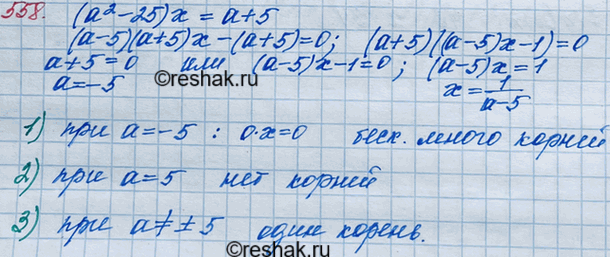 558. (a²-25)x = a+5
(a-5)(a+5)x-(a+5)=0; (a+5)((a-5)x-1)=0
a+5=0 или (a-5)x-1=0; (a-5)x=1
a=-5 x=1/(a-5)
©reshak.ru
1) при a=-5 : 0·x=0 беск. много корней
2) при a=5 нет корней
3) при a≠±5 один корень.
©reshak.ru